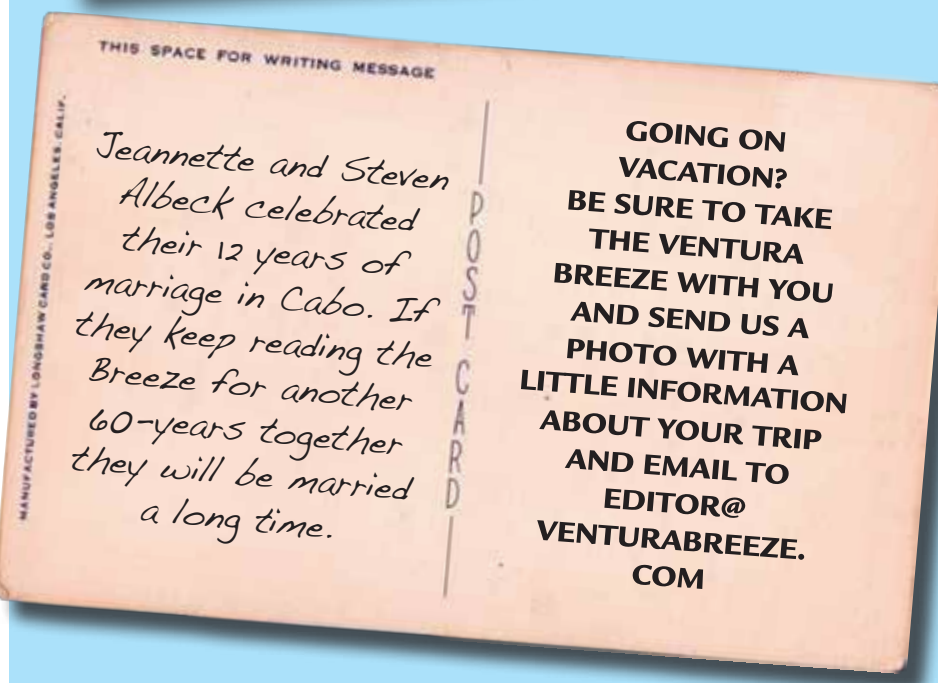 THIS SPACE FOR WRITING MESSAGE
MANUFACTURED BY LONGSHAW CARD CO., LOS ANGELES, CALIF.
Jeannette and Steven
Albeck celebrated
their 12 years of
marriage in Cabo. If
they keep reading the
Breeze for another
60-years together
they will be married
a long time.
POST CARD
GOING ON
VACATION?
BE SURE TO TAKE
THE VENTURA
BREEZE WITH YOU
AND SEND US A
PHOTO WITH A
LITTLE INFORMATION
ABOUT YOUR TRIP
AND EMAIL TO
EDITOR@
VENTURABREEZE.
COM